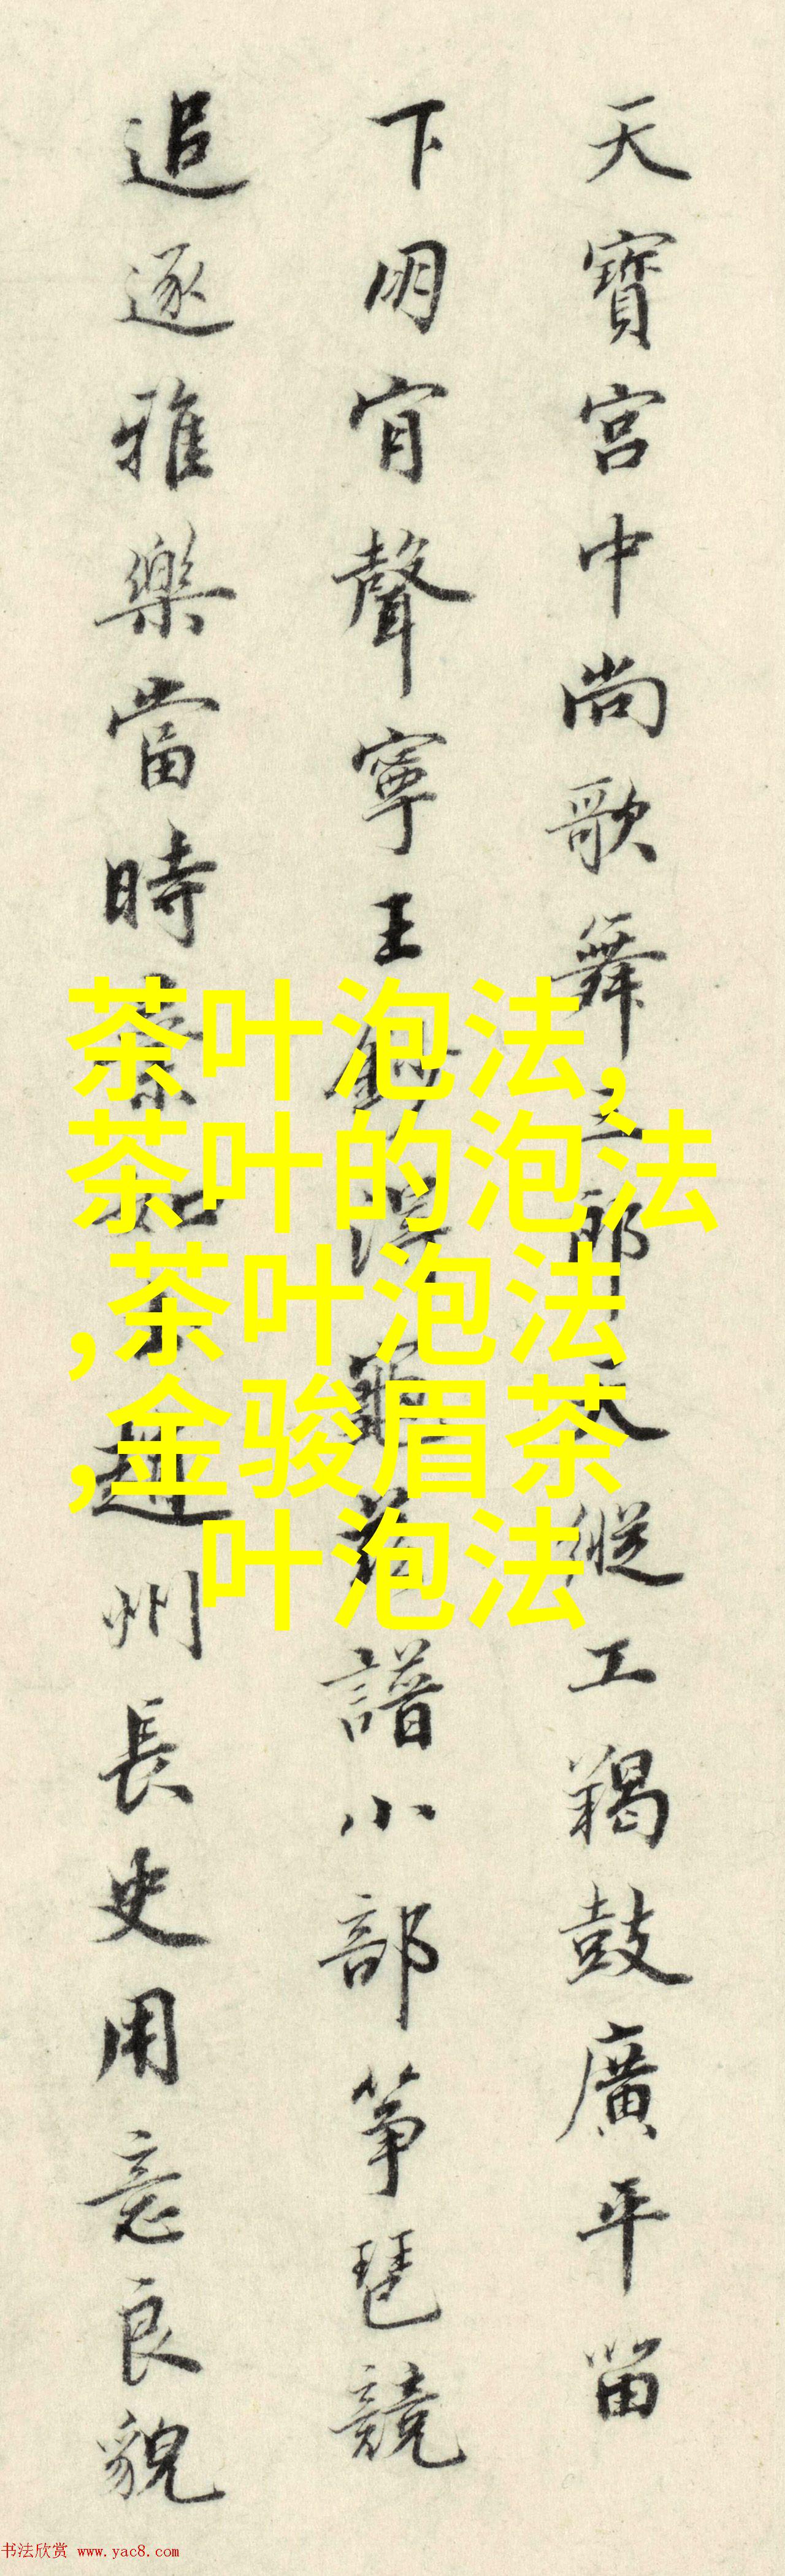 天寶宮中尚歌舞三郎天縱工羯鼓廣平留
下明宵聲寧王
譜小部箏琵競
追逐雅樂當時
趙州長史用意良貌
茶叶泡法,
茶叶的泡法
,茶叶泡法
,金骏眉茶
叶泡法
书法欣赏 www.yac8.com